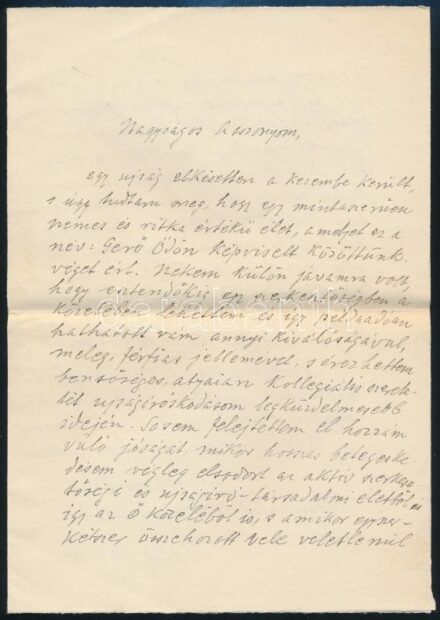 Nagyságos Asszonyom,
egy ujság elkésetten a kezembe került,
s úgy tudtam meg, hogy egy mintaszerüen
nemes és ritka értékü élet, amelyet ez a
név: Gerő Ödön képviselt közöttünk
véget ért. Nekem külön javamra volt,
hogy esztendőkig egy szerkesztőségben a
közelében lehettem és így példaadóan
hathatott rám annyi kiválóságával,
meleg, férfias jellemével, s érezhettem
bensőséges, atyaian kollegiális szerete-
tét ujságíróskodásom legküzdelmesebb
idején. Sosem felejtettem el hozzám
való jóságát, mikor hosszas betegeske-
désem végleg elsodort az aktív szerkesz-
tőségi és ujságíró-társadalmi élettől és
így az Ő közeléből is, s amikor egyszer-
kétszer összehozott Vele véletlenül